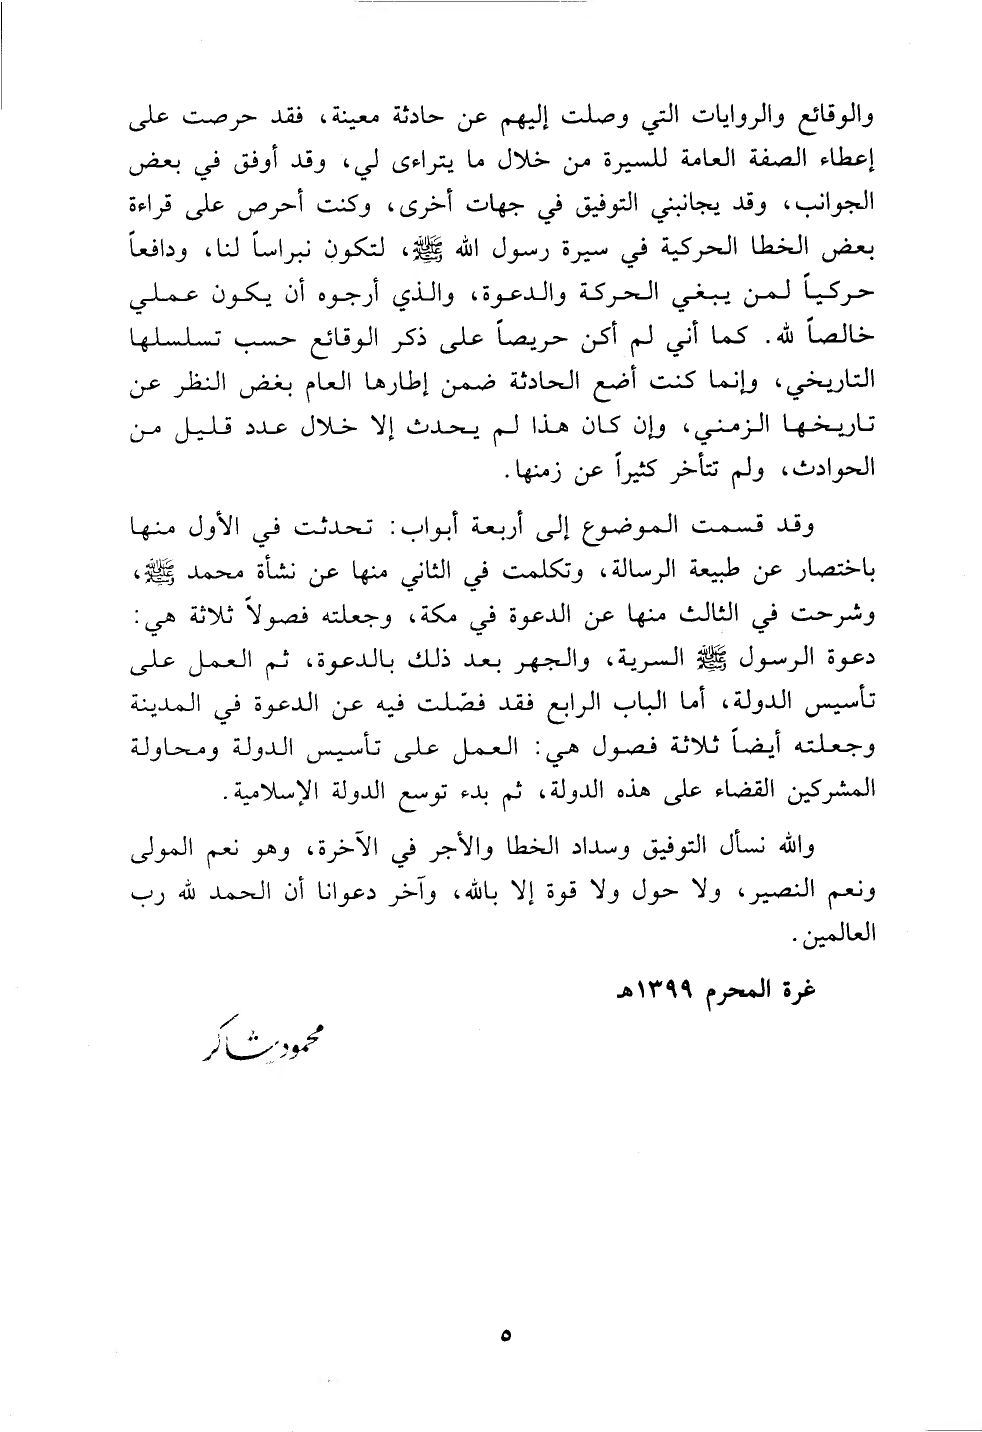 والوقائع والروايات التي وصلت إليهم عن حادثة معينة، فقد حرصت على
إعطاء الصفة العامة للسيرة من خلال ما يتراءى لي، وقد أوفق في بعض
الجوانب، وقد يجانبني التوفيق في جهات أخرى، وكنت أحرص على قراءة
بعض الخطا الحركية في سيرة رسول الله ﷺ، لتكون نبراساً لنا، ودافعاً
حركياً لمن يبغي الحركة والدعوة، والذي أرجوه أن يكون عملي
خالصاً لله. كما أني لم أكن حريصاً على ذكر الوقائع حسب تسلسلها
التاريخي، وإنما كنت أضع الحادثة ضمن إطارها العام بغض النظر عن
تاريخها الزمني، وإن كان هذا لم يحدث إلا خلال عدد قليل من
الحوادث، ولم تتأخر كثيراً عن زمنها.
وقد قسمت الموضوع إلى أربعة أبواب: تحدثت في الأول منها
باختصار عن طبيعة الرسالة، وتكلمت في الثاني منها عن نشأة محمد ﷺ،
وشرحت في الثالث منها عن الدعوة في مكة، وجعلته فصولاً ثلاثة هي:
دعوة الرسول ﷺ السرية، والجهر بعد ذلك بالدعوة، ثم العمل على
تأسيس الدولة، أما الباب الرابع فقد فصّلت فيه عن الدعوة في المدينة
وجعلته أيضاً ثلاثة فصول هي: العمل على تأسيس الدولة ومحاولة
المشركين القضاء على هذه الدولة، ثم بدء توسع الدولة الإسلامية.
والله نسأل التوفيق وسداد الخطا والأجر في الآخرة، وهو نعم المولى
ونعم النصير، ولا حول ولا قوة إلا بالله، وآخر دعوانا أن الحمد لله رب
العالمين.
غرة المحرم ١٣٩٩هـ
محمود شاكر
٥